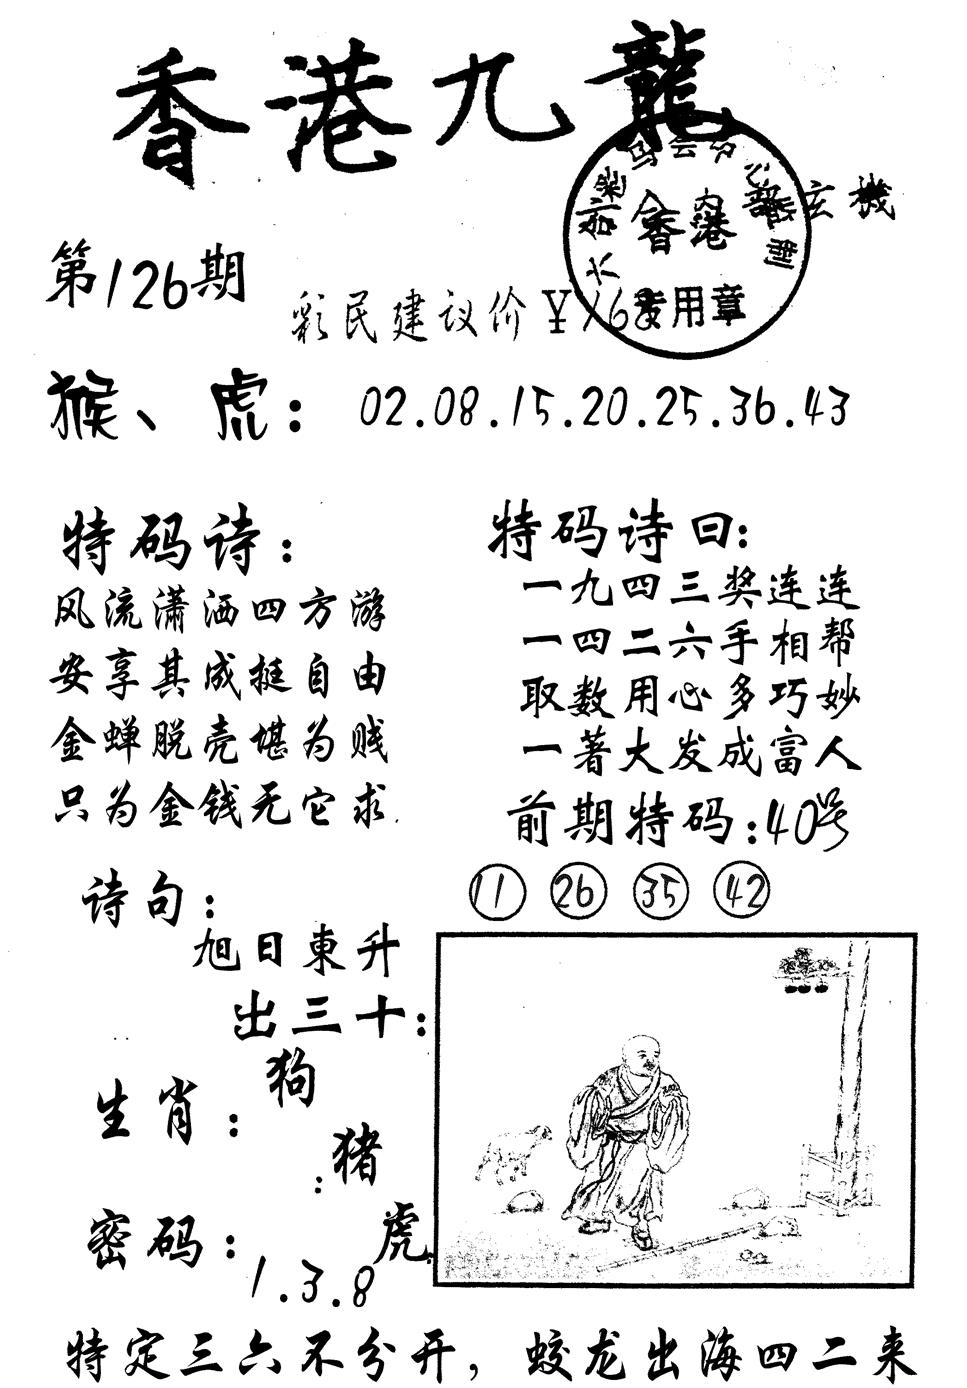 香港九龍
六合彩
内部玄機
香港
专用章
第126期
彩民建议价￥168
猴、虎：02.08.15.20.25.36.43
特码诗：
风流潇洒四方游
安享其成挺自由
金蝉脱壳堪为贱
只为金钱无它求
特码诗曰：
一九四三奖连连
一四二六手相帮
取数用心多巧妙
一著大发成富人
前期特码：40号
11 26 35 42
诗句：
旭日東升
出三十：
生肖：狗
猪
虎
密码：1.3.8
特定三六不分开，蛟龙出海四二来